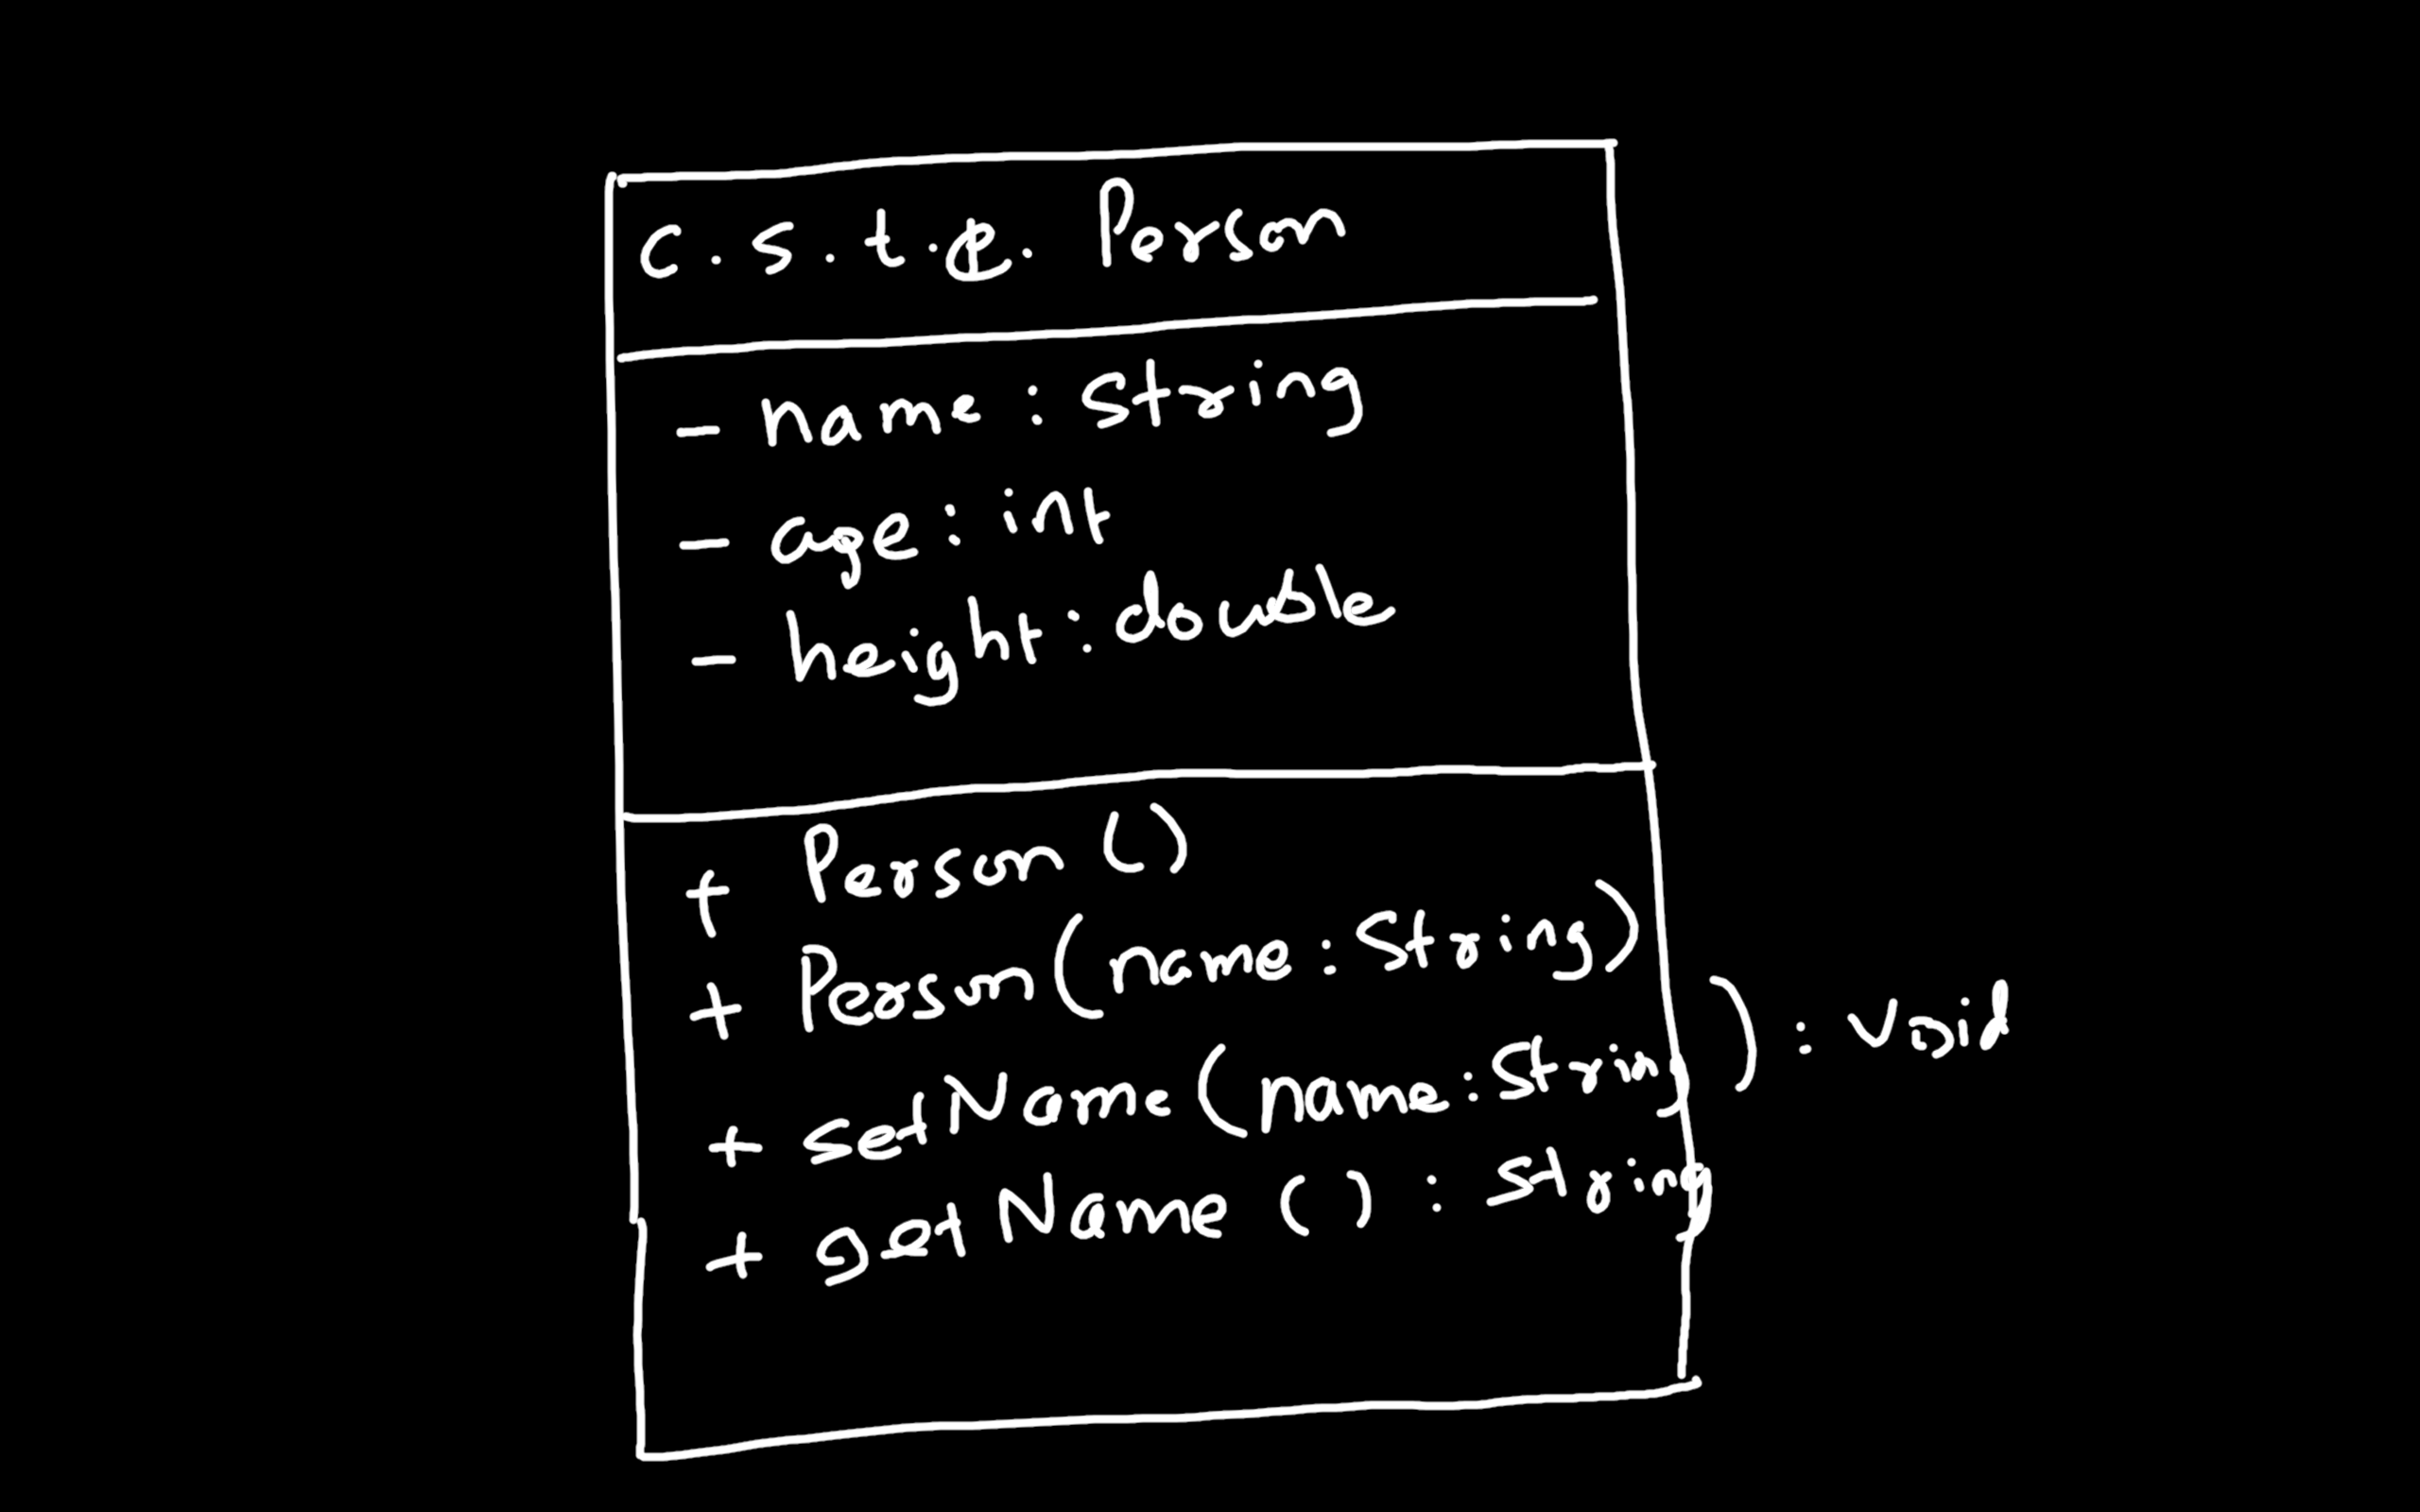 c.s.t.e. Person
- name : String
- age : int
- height : double
+ Person ()
+ Person (name : String)
+ setName (name : String) : void
+ getName () : String